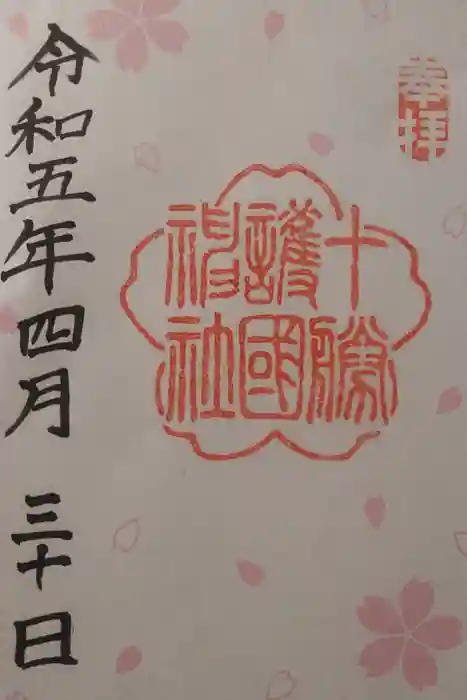 奉拝
十勝
護國
神社
令和五年四月三十日